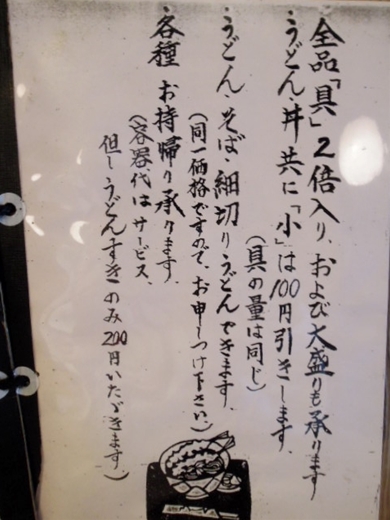 全品「具」2倍入り、および大盛りも承ります
うどん、丼共に「小」は100円引きします.
(具の量は同じ)
うどん、そば、細切りうどんできます.
(同一価格ですので、お申しつけ下さい.)
各種 お持帰り承ります.
(容器代はサービス、
但しうどんすきのみ200円いただきます.)